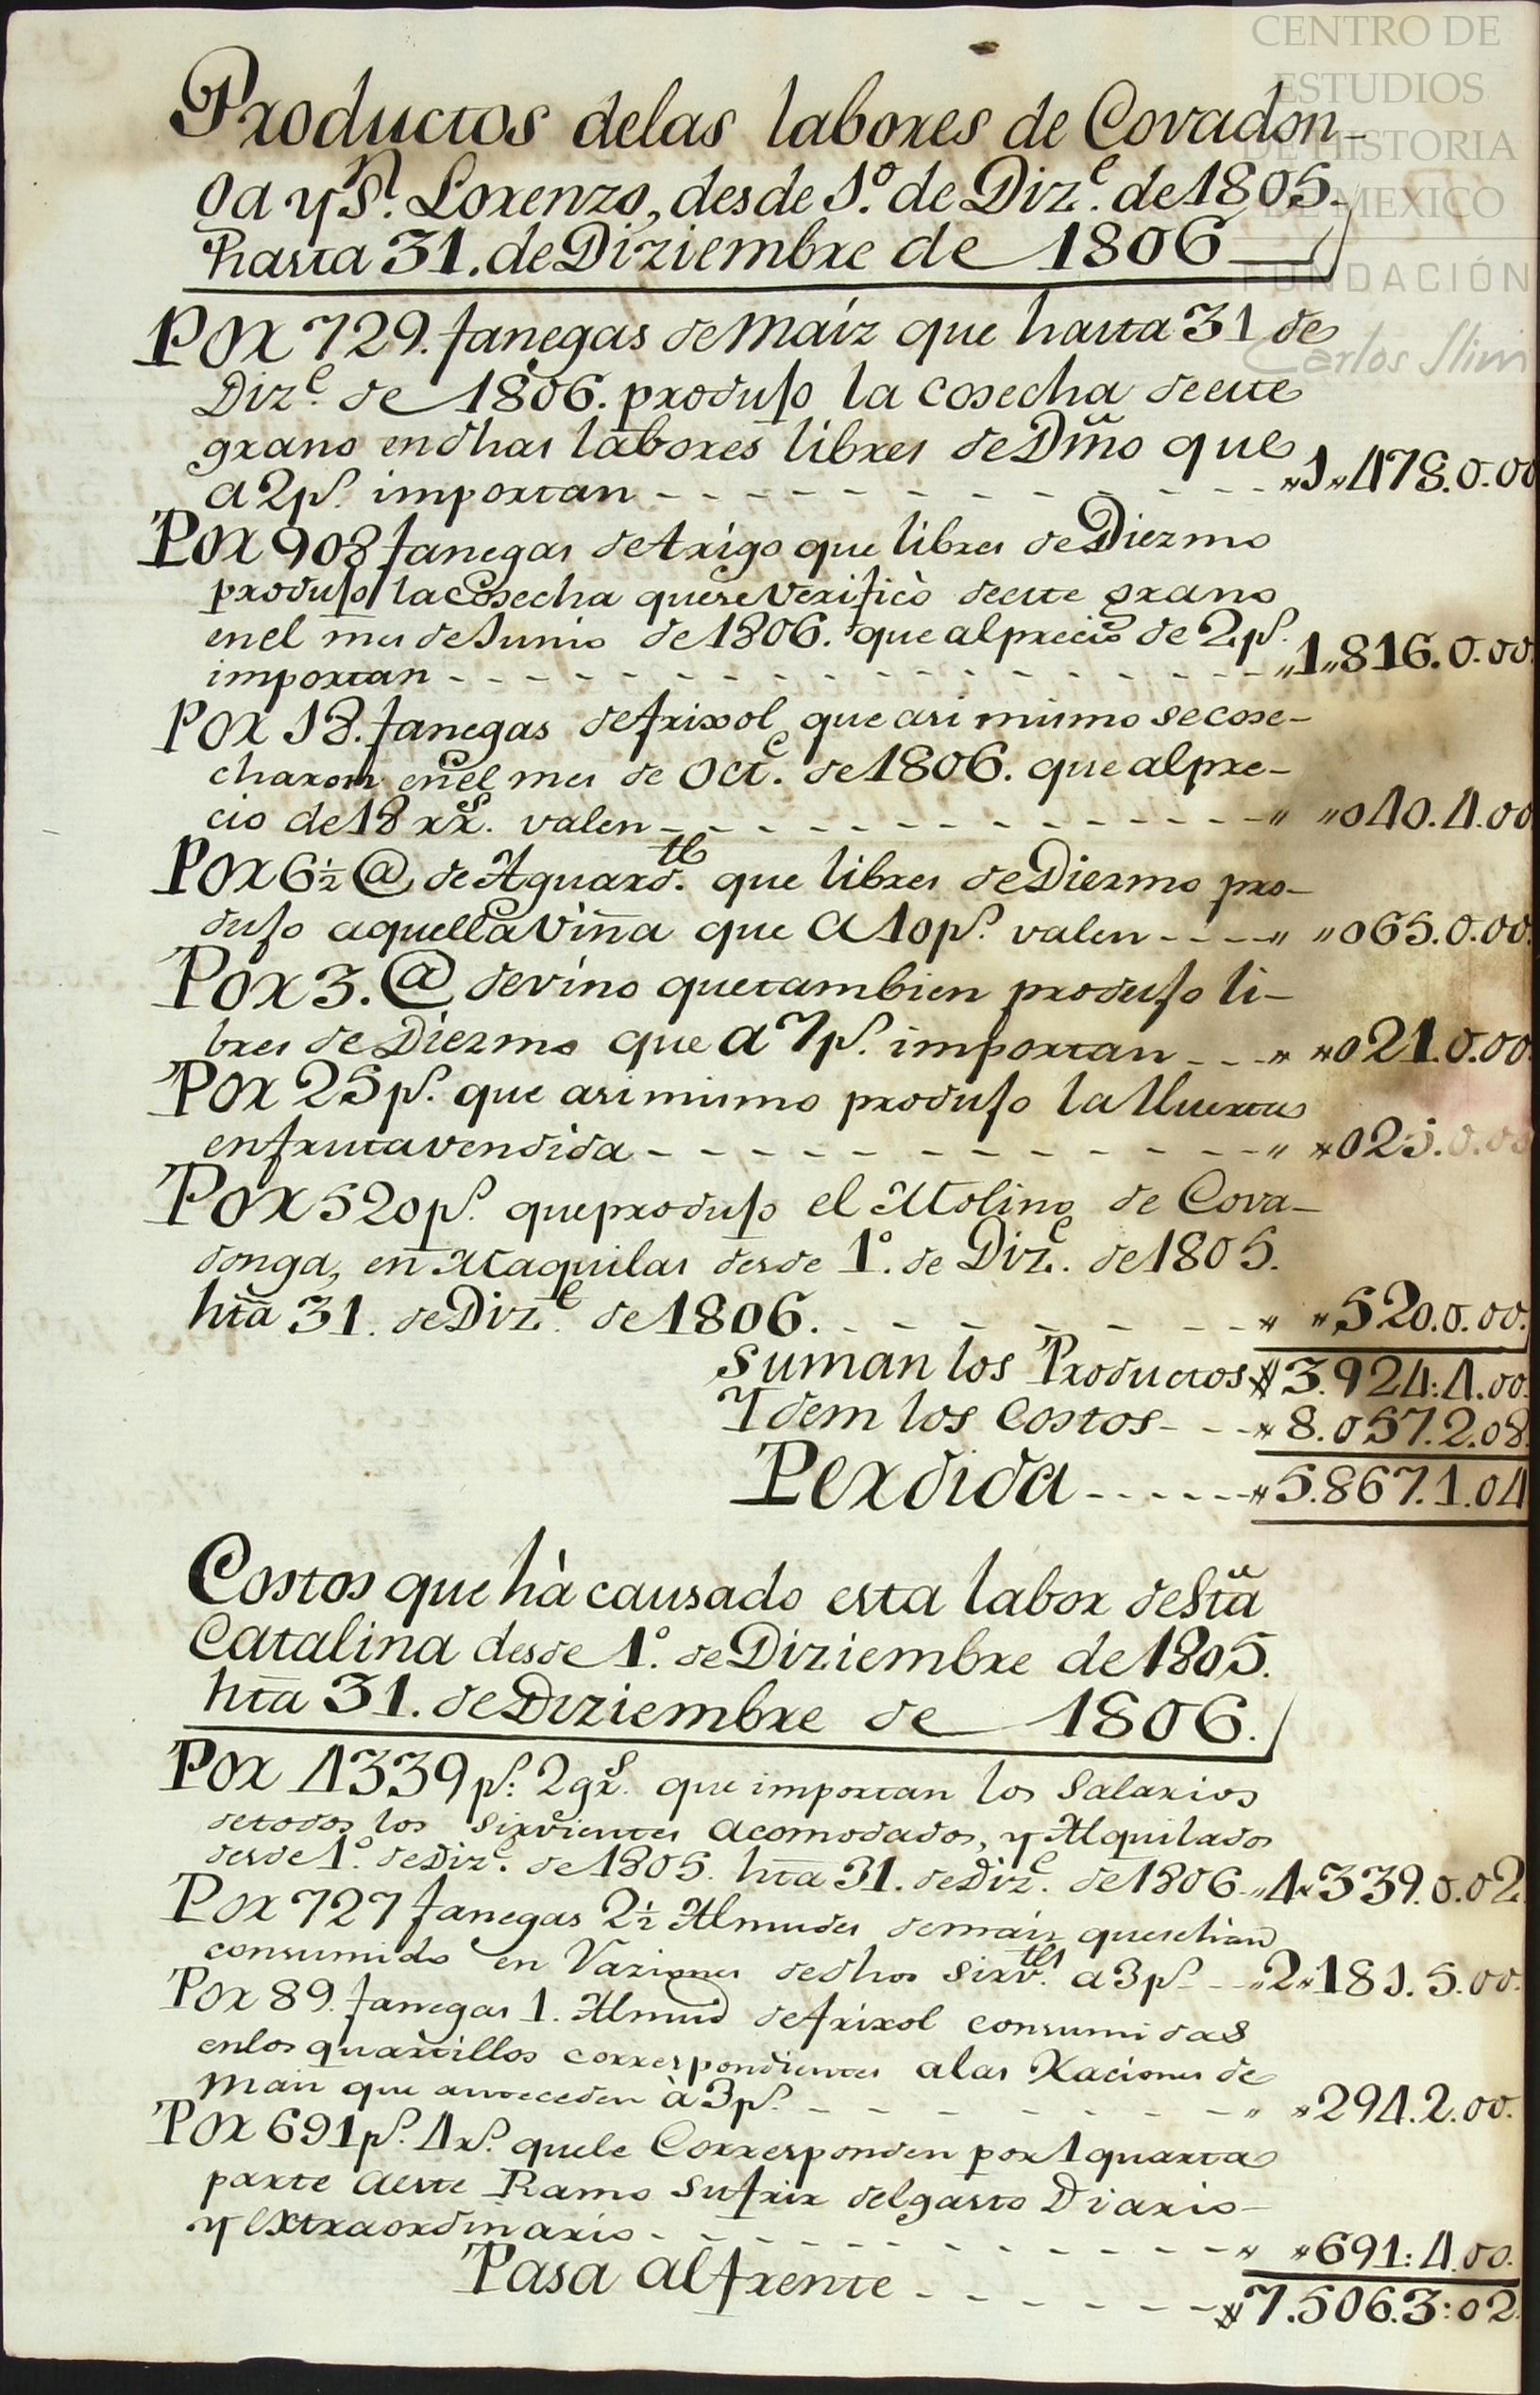 CENTRO DE
ESTUDIOS
DE HISTORIA
DE MEXICO
FUNDACIÓN
Carlos Slim
Productos delas labores de Covadon-
ga y Sn. Lorenzo, desde 1.º de Dize. de 1805.
hasta 31. de Diziembre de 1806
Por 729. fanegas de Maiz que hasta 31 de
Dize. de 1806. produjo la cosecha de este
grano en dhas labores libres de Dmo que
a 2 ps. importan - - - - - - - - - - - - „1„478.0.00
Por 908 fanegas de trigo que libres de Diezmo
produjo la Cosecha que se verificò de este grano
en el mes de Junio de 1806. que al precio de 2 ps.
importan - - - - - - - - - - - - - - - - „1„816.0.00.
Por 18. fanegas de frixol que asi mismo se cose-
charon en el mes de Octe. de 1806. que al pre-
cio de 18 rrs. valen - - - - - - - - - - - - - „ „040.4.00
Por 6½ @ de Aguardte. que libres de Diezmo pro-
dujo aquella Viña que a 10 ps. valen - - - - „ „065.0.00.
Por 3. @ de vino que tambien produjo li-
bres de Diezmo que a 7 ps. importan - - - „ „021.0.00.
Por 25 ps. que asi mismo produjo la Huerta
en fruta vendida - - - - - - - - - - - - - „ „025.0.00
Por 520 ps. que produjo el Molino de Cova-
donga, en Maquilas desde 1º. de Dize. de 1805.
hta 31. de Dize. de 1806. - - - - - - - - - „ „520.0.00.
Suman los Productos $ 3.924:4.00.
Ydem los Costos - - - „ 8.057.2.08.
Perdida - - - - - - „ 5.867.1.04
Costos que hà causado esta labor de Sta
Catalina desde 1º. de Diziembre de 1805.
hta 31. de Diziembre de 1806.
Por 4339 ps. 2 grs. que importan los Salarios
de todos los Sirvientes acomodados, y Alquilados
desde 1º. de Dize. de 1805. hta 31. de Dize. de 1806 - „4„339.0.02.
Por 727 fanegas 2½ Almudes de maiz que se han
consumido en Raziones de dhos sirvtes. a 3 ps. - - „2„181.5.00.
Por 89. fanegas 1. Almud de frixol consumidas
en los quartillos correspondientes a las Raciones de
Maiz que anteceden à 3 ps. - - - - - - - - „ „294.2.00.
Por 691 ps. 4 rs. que le Corresponden por 1 quarta
parte a este Ramo Sufrir del gasto Diario
y extraordinario - - - - - - - - - - - - „ „691:4.00.
Pasa al frente - - - - - - - $7.506.3:02.